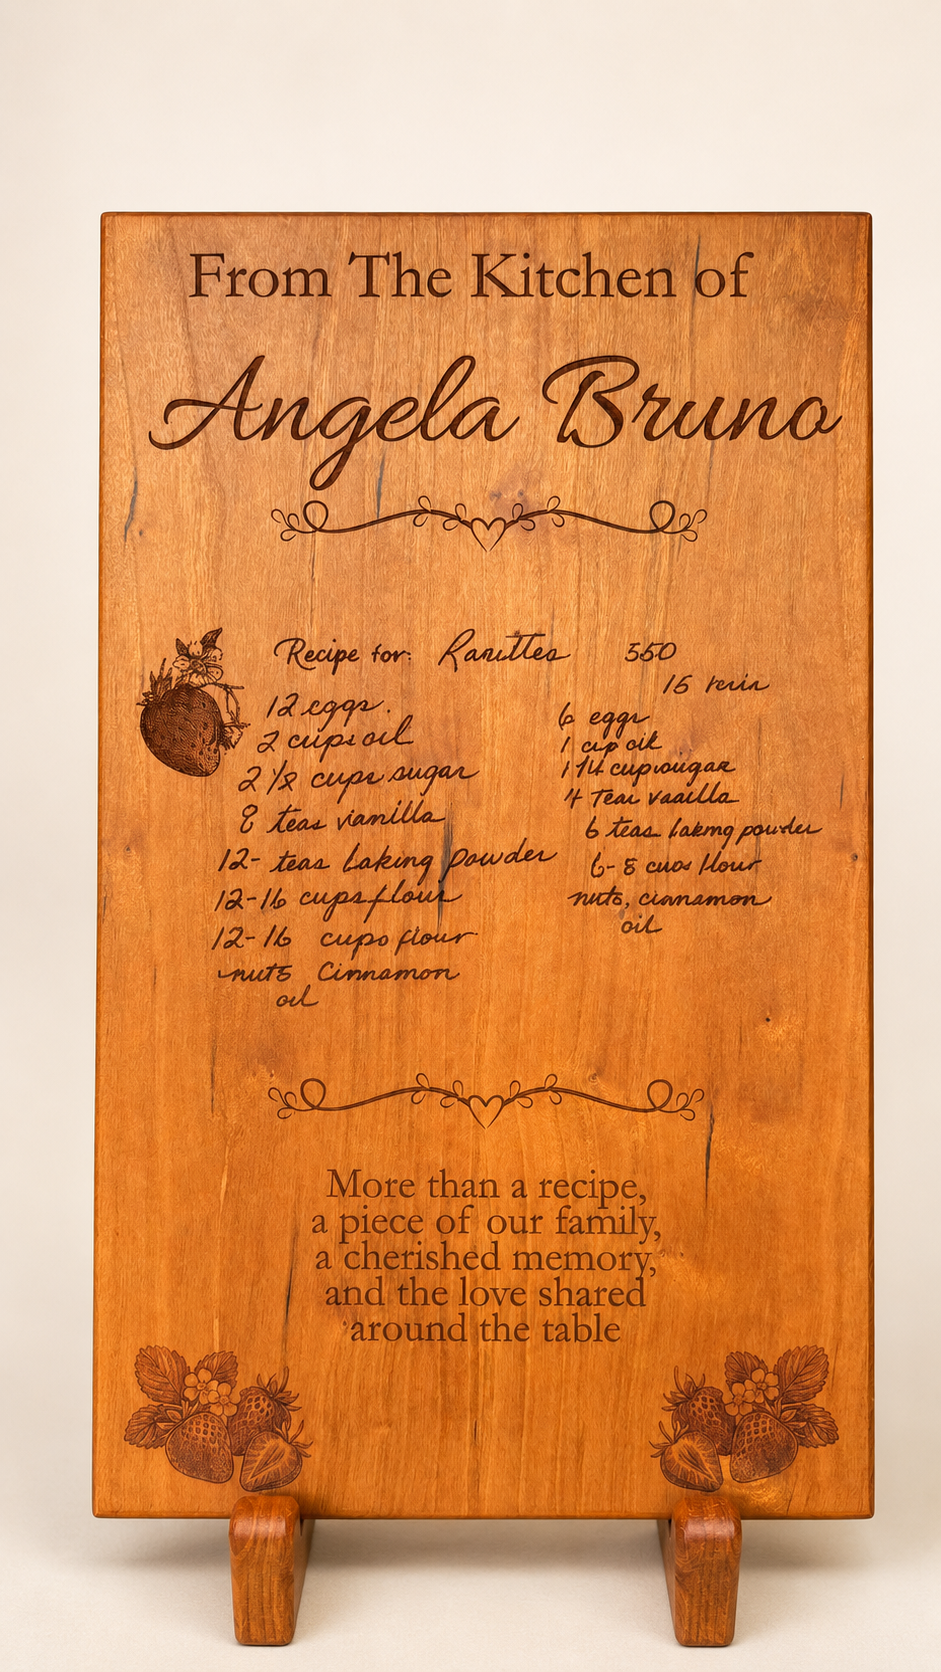 From The Kitchen of
Angela Bruno
Recipe for: 350
15
12 eggs.
2 cups oil
2 1/2 cups sugar
8 teas vianilla
12- teas baking powder
12-16 cups flour
12-16 cups flour
nuts Cinnamon
oil
6 eggs
1 cup oil
1 1/4 cup sugar
4 Teas vaailla
6 teas baking powder
6-8 cups flour
nuts, cinnamon
oil
More than a recipe,
a piece of our family,
a cherished memory,
and the love shared
around the table